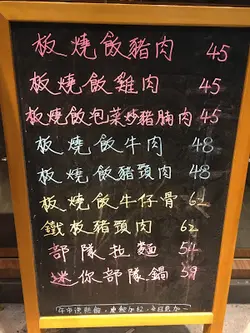 板燒飯豬肉 45
板燒飯雞肉 45
板燒飯泡菜炒豬腩肉 45
板燒飯牛肉 48
板燒飯豬頸肉 48
板燒飯牛仔骨 62
鐵板豬頸肉 62
部隊拉麵 54
迷你部隊鍋 59
午市送